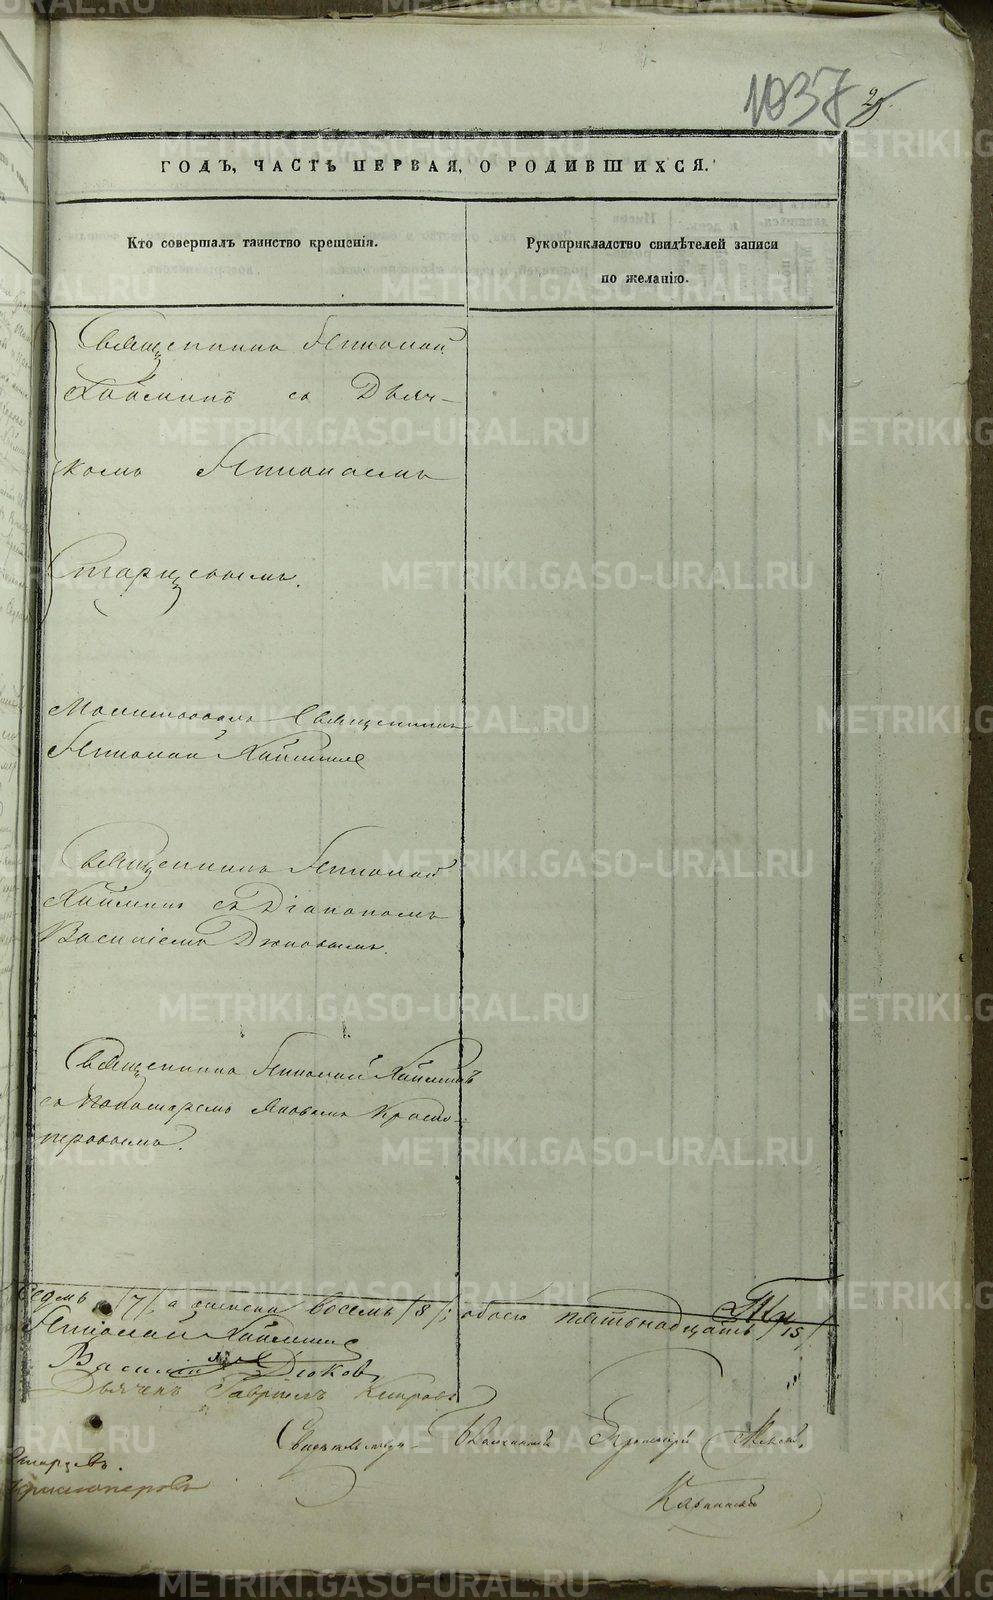 1037
ГОДЪ, ЧАСТЬ ПЕРВАЯ, О РОДИВШИХСЯ.
Кто совершалъ таинство крещенія.
Рукоприкладство свидѣтелей записи
по желанію.
Священникъ Николай
Хайминъ съ Дьяч-
комъ
Старцевымъ.
Молитвовалъ Священникъ
Николай Хайминъ
Священникъ Николай
Хайминъ съ Діакономъ
Василіемъ Дюковымъ.
Священникъ Николай Хайминъ
съ Пономаремъ Яковомъ Красно-
перовымъ.
седмь /7/, а женска восемь /8/; обоего пятьнадцать /15/
Николай Хайминъ
Василій Дюковъ
Дьячекъ Гавріилъ
Старцевъ.
Красноперовъ
METRIKI.GASO-URAL.RU